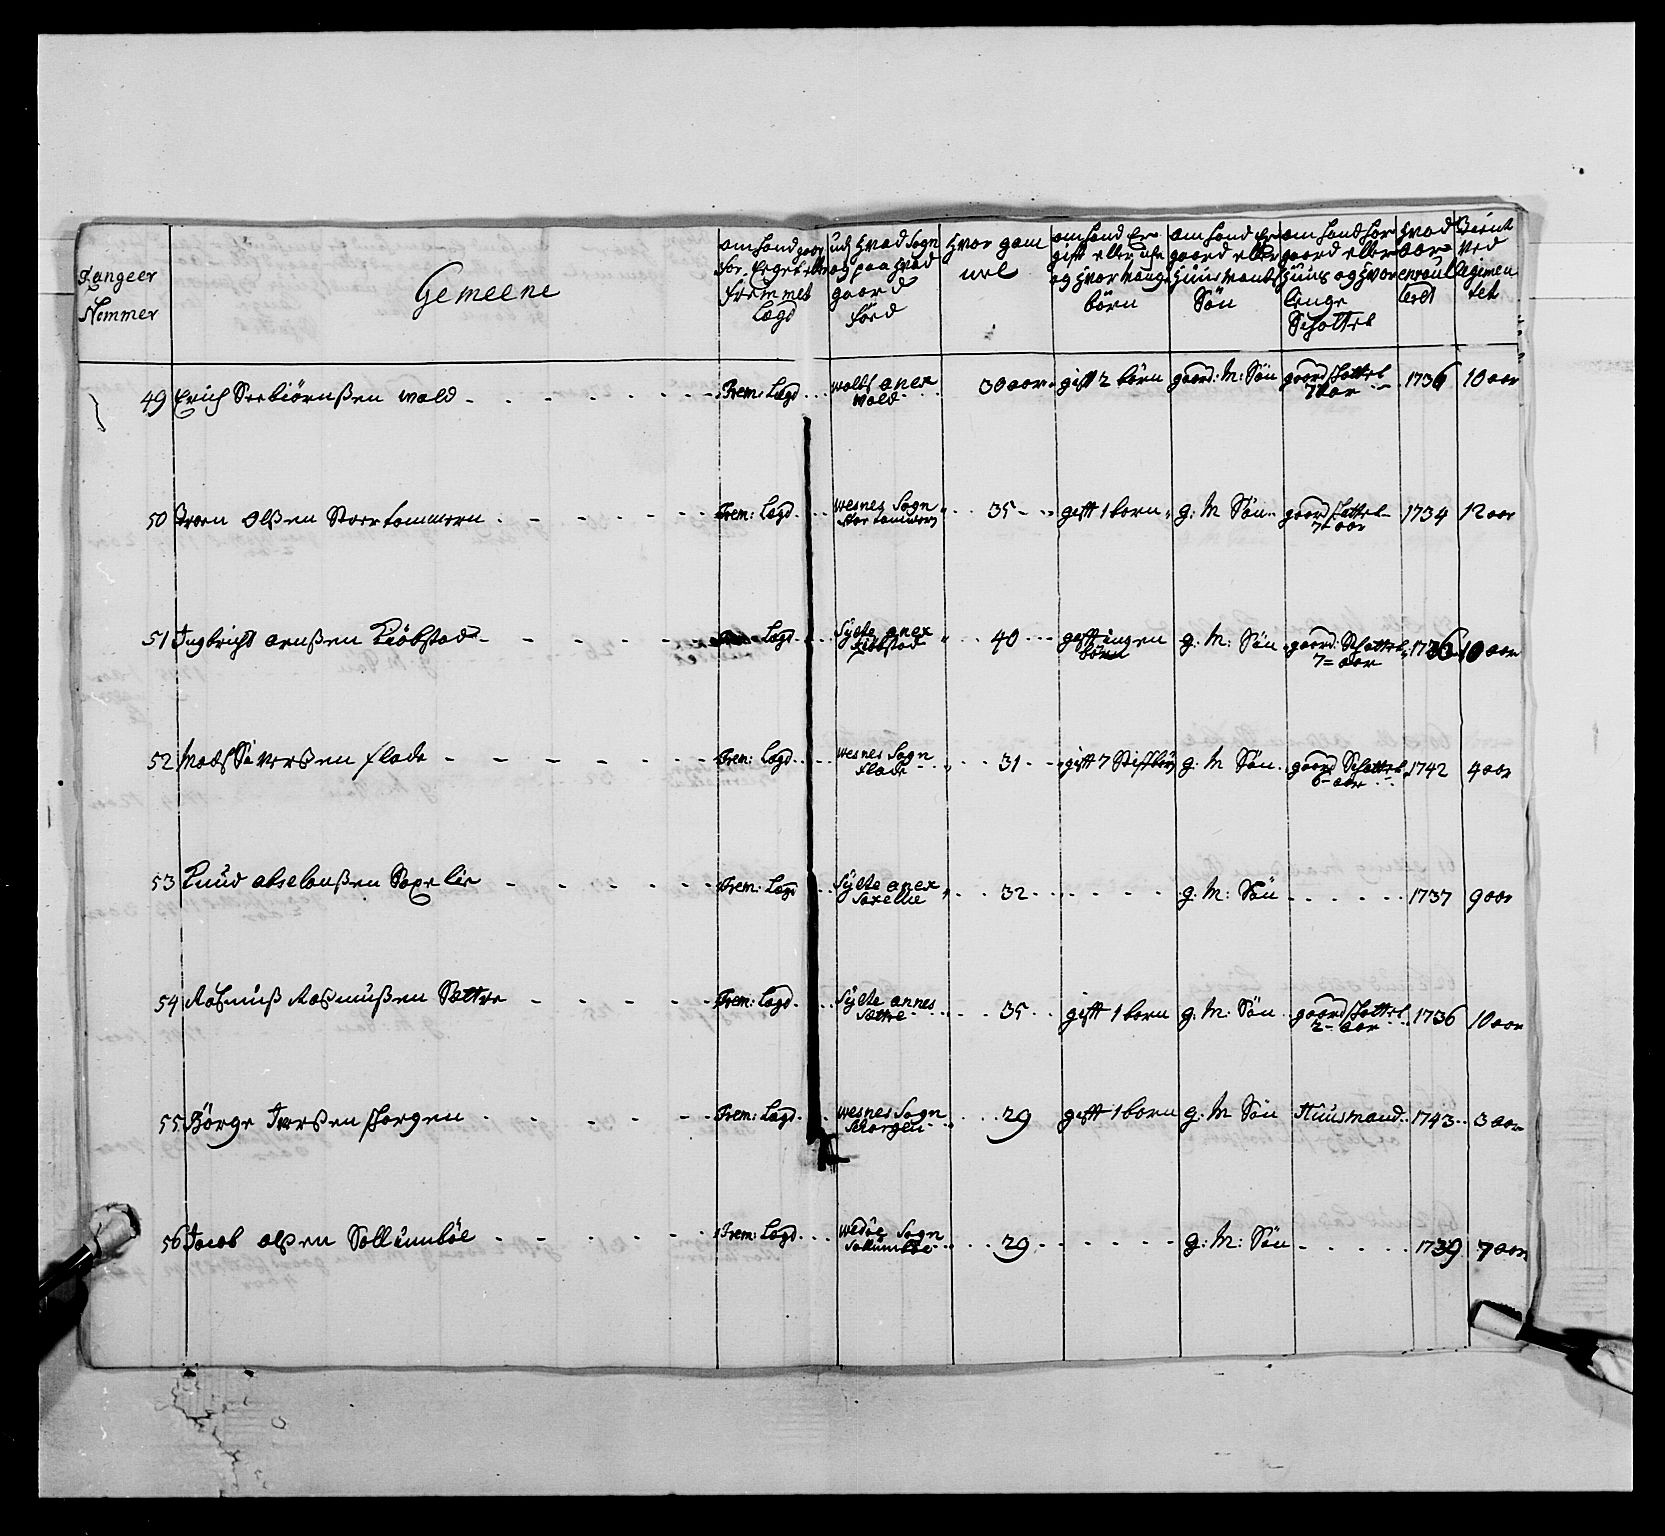 Rangeer Nummer
Gemeene
om hand gaar for Eeget eller fremmet Lægd
ud hvad Sogn og paa hvad gaard föed
hvor gam mel
om hand Er gift eller ... og hvor mange börn
om hand Er gaard eller huusmands Sön
om hand har gaard eller huus og hvor lenge
hvad aar enroul lerdt
Tient ved Regimen tet
49 Erich Seebiörnßen wold - - - Frem: Lægd wolds anex wold 30 aar gift 2 börn gaard: M: Sön gaard 7 aar 1736 10 aar
50 Olßen Stoertommern - - - Frem: Lægd wesnes Sogn 35 gift 1 born g: M Sön gaard 7 aar 1734 12 aar
51 Ingbricht arnßen Kiöbstad - - - Lægd Sylte anex Kiöbstad 40 gift ingen börn g: M: Sön gaard 7 aar 1736 10 aar
52 Mads Siversen flade - - - Frem: Lægd wesnes Sogn flade 31 gift 7 Stifbörn g: M Sön gaard 6 aar 1742 4 aar
53 Knud abselonßen Saxe lie - - - Frem: Lægd Sylte anex Saxe lie 32 - - - g: M: Sön - - - 1737 9 aar
54 Raßmuß Raßmußen Sættre - - - Frem: Lægd Sylte annex Sættre 35 gift 1 born g: M: Sön gaard 2 aar 1736 10 aar
55 Börge Iversen skorgen - - - Frem: Lægd wesnes Sogn Skorgen 29 gift 1 born g: M Sön Huusmand 1743 3 aar
56 Jacob olßen Sollumböe - - - Frem: Lægd wedöe Sogn Sollumböe 29 - - - g: M: Sön - - - 1739 7 aar